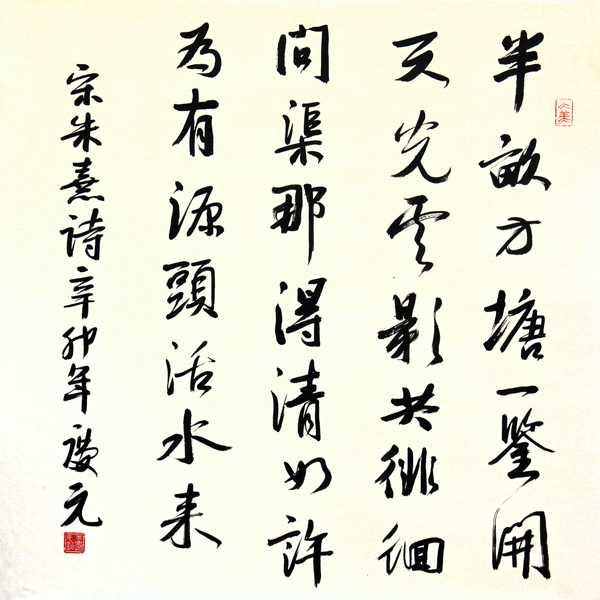 半畝方塘一鑒開
天光雲影共徘徊
問渠那得清如許
為有源頭活水来
宋朱熹詩辛卯年慶元